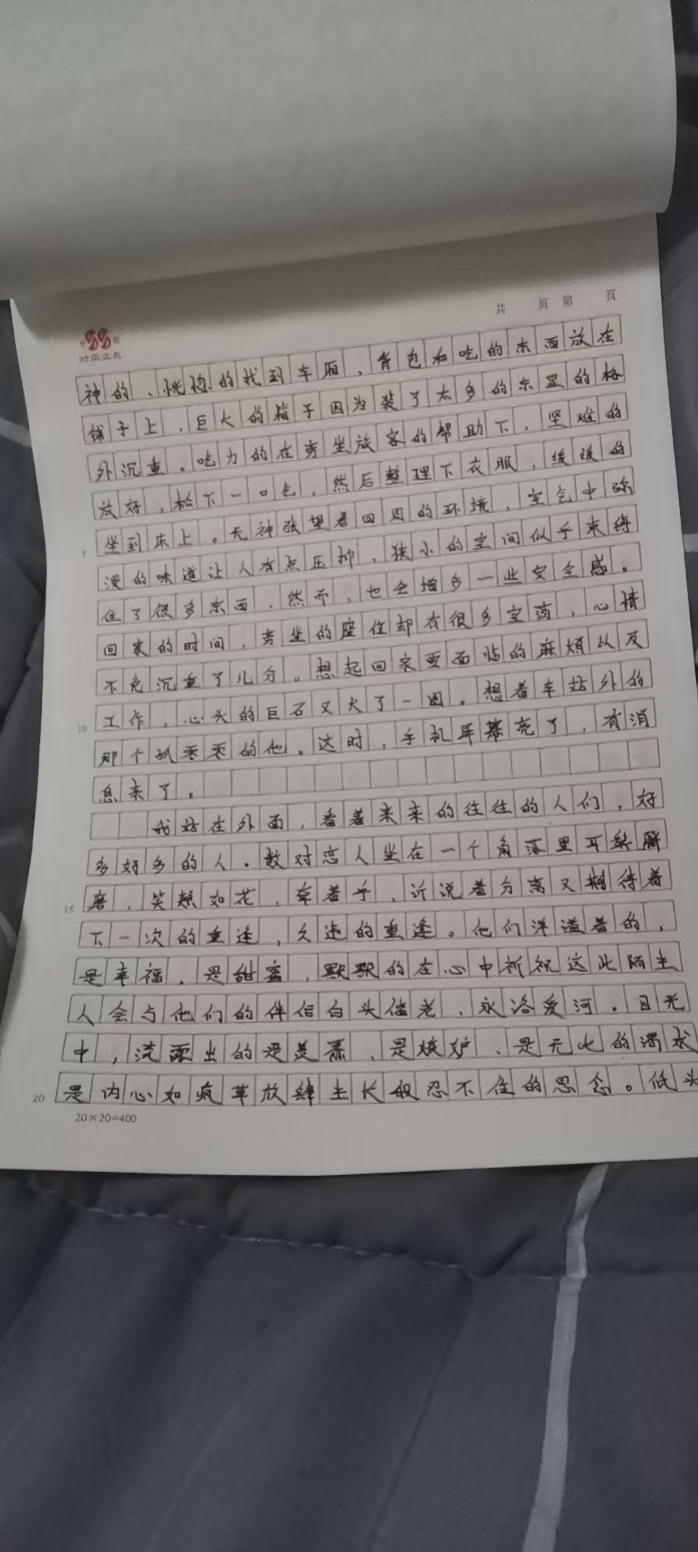 共 页 第 页
时尚文具
神的、恍惚的找到车厢、背包和吃的东西放在
铺子上、巨大的箱子因为装了太多的东显的格
外沉重。吃力的在旁坐旅客的帮助下，坚难的
放好，松下一口气，然后整理下衣服，缓缓的
5
坐到床上。无神张望着四周的环境，空气中弥
漫的味道让人有点压抑，狭小的空间似乎束缚
住了很多东西、然而、也会增多一些安全感。
回家的时间，旁坐的座位却有很多空荡，心情
不免沉重了几分。想起回家要面临的麻烦以及
10
工作，心头的巨石又大了一圈。想着车站外的
那个孤零零的他。这时，手机屏幕亮了，有消
息来了。
我站在外面，看着来来的往往的人们，好
多好多的人。数对恋人坐在一个角落里耳鬓厮
15
磨，笑颜如花，牵着手、诉说着分离又期待着
下一次的重逢，久违的重逢。他们洋溢着的，
是幸福，是甜蜜，默默的在心中祈祝这些陌生
人会与他们的伴侣白头偕老、永洛爱河。目光
中，流露出的是羡慕、是嫉妒、是无比的渴求
20
是内心如疯草放肆生长般忍不住的思念。低头
20×20=400